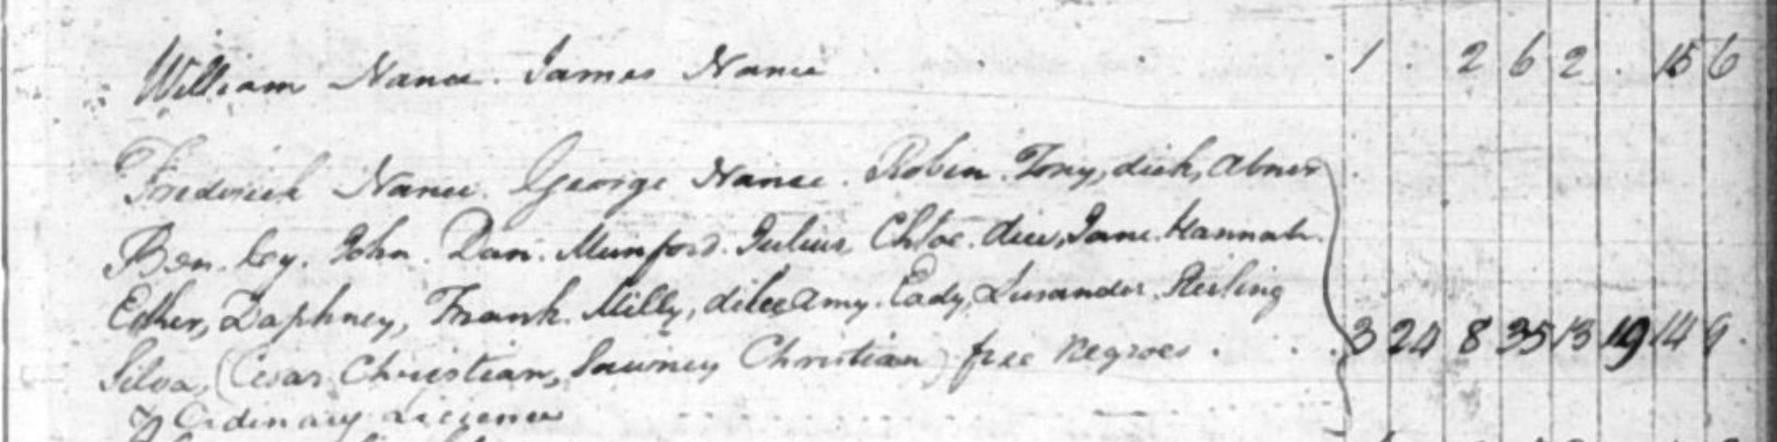 William Nance. James Nance 1 . 2 6 2 . 15 6
Frederick Nance. George Nance. Robin. Tony, dick, Abner
Ben. John. Dan. Munford. Julius Chloe. dice, Jane. Hannah.
Esther, Daphney, Frank. Milly, Amy. Eady, Sterling
Silva, (Cesar Christian, Sawney Christian) free Negroes. 3 24 8 35 13 19 14 9
Ordinary License